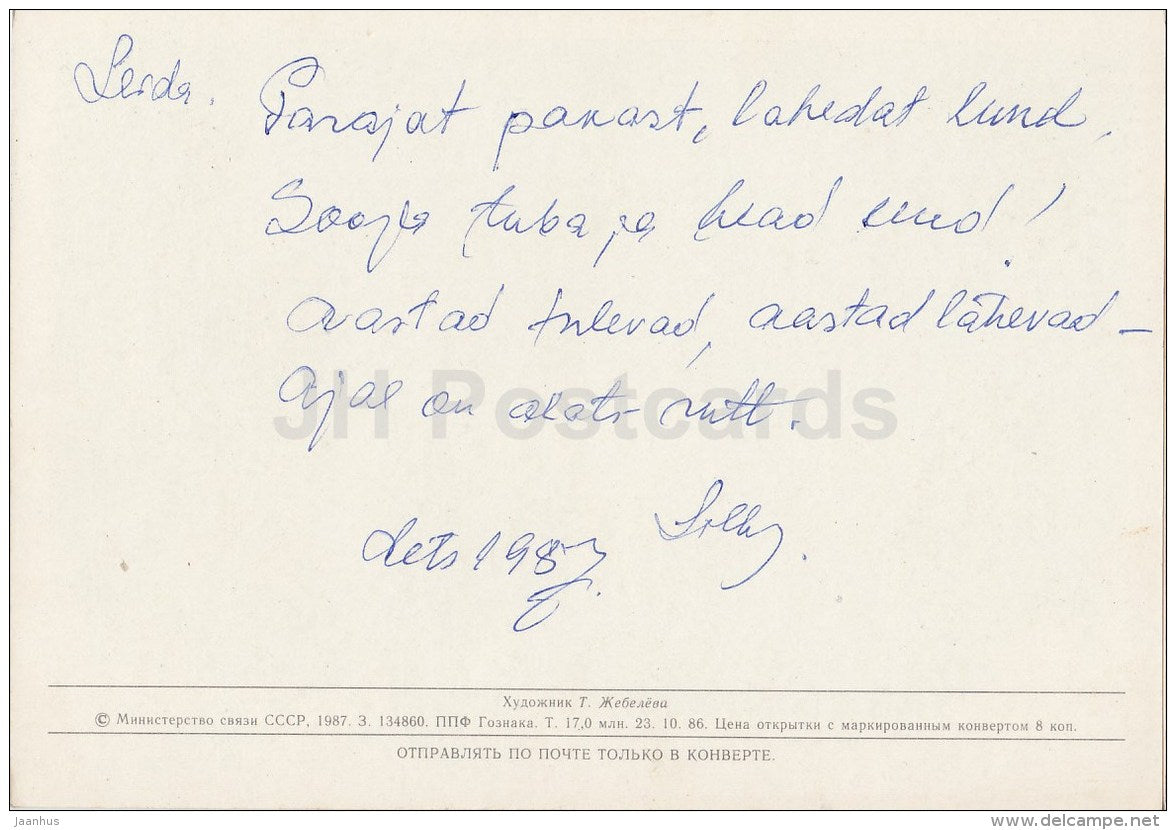 Leida. Parajat pakast, lahedat lund,
Sooja tuba ja head und!
Aastad tulevad, aastad lähevad –
Ajal on alati rutt.
Dets 1987. Silly.
JH Postcards
Художник Т. Жебелёва
© Министерство связи СССР, 1987. З. 134860. ППФ Гознака. Т. 17,0 млн. 23. 10. 86. Цена открытки с маркированным конвертом 8 коп.
ОТПРАВЛЯТЬ ПО ПОЧТЕ ТОЛЬКО В КОНВЕРТЕ.
Jaanhus
www.delcampe.net